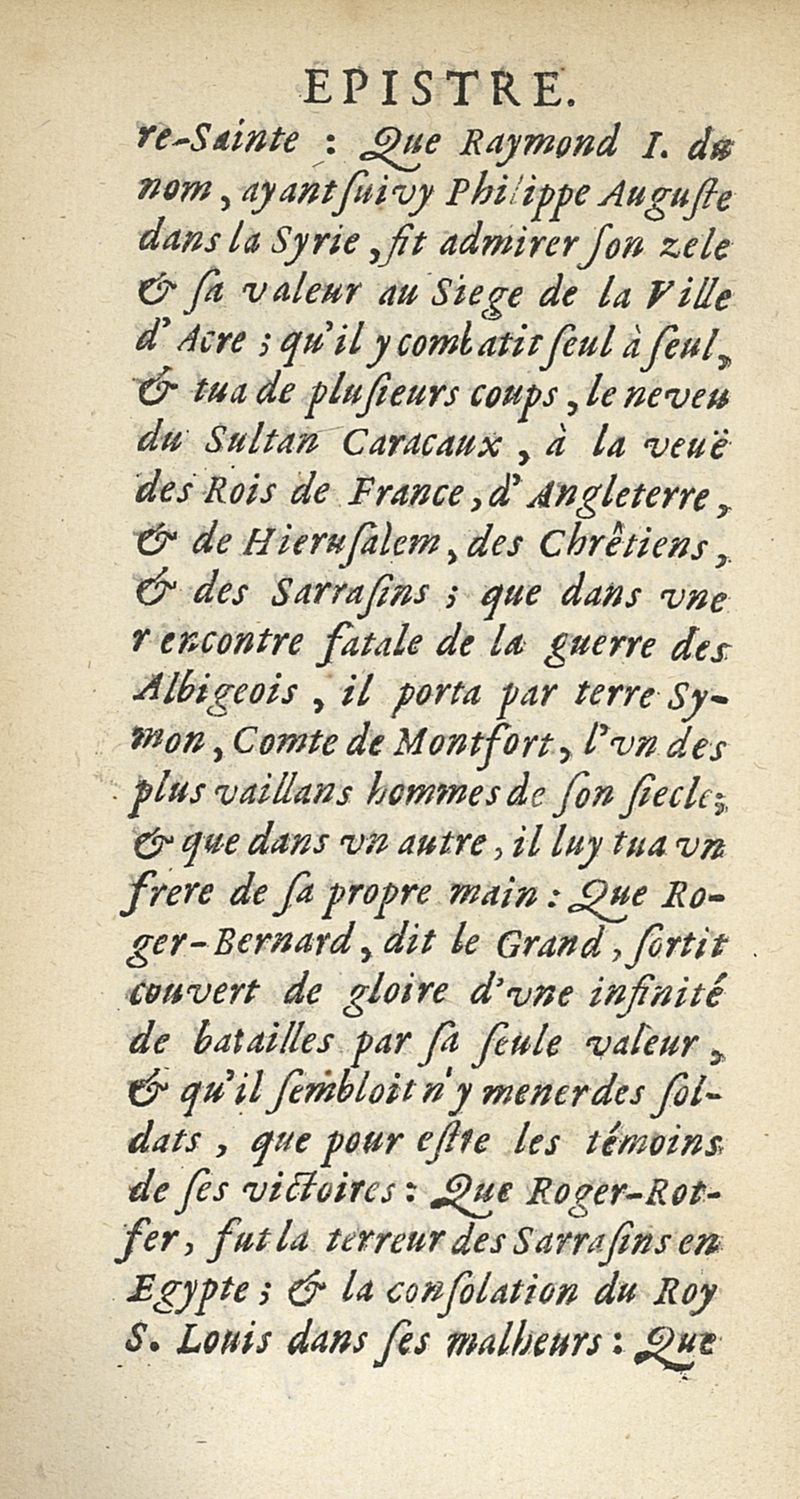 EPISTRE.
re-Sainte : Que Raymond I. du
nom, ayant ſuivy Philippe Auguſte
dans la Syrie, fit admirer ſon zele
& ſa valeur au Siege de la Ville
d'Acre ; qu'il y combatit ſeul à ſeul,
& tua de pluſieurs coups, le neveu
du Sultan Caracaux, à la veuë
des Rois de France, d'Angleterre,
& de Hieruſalem, des Chrêtiens,
& des Sarraſins ; que dans vne
rencontre fatale de la guerre des
Albigeois, il porta par terre Sy-
mon, Comte de Montfort, l'vn des
plus vaillans hommes de ſon ſiecle;
& que dans vn autre, il luy tua vn
frere de ſa propre main : Que Ro-
ger-Bernard, dit le Grand, ſortit
couvert de gloire d'vne infinité
de batailles par ſa ſeule valeur,
& qu'il ſembloit n'y mener des ſol-
dats, que pour eſtre les témoins
de ſes victoires : Que Roger-Rot-
fer, fut la terreur des Sarraſins en
Egypte ; & la conſolation du Roy
S. Louis dans ſes malheurs : Que